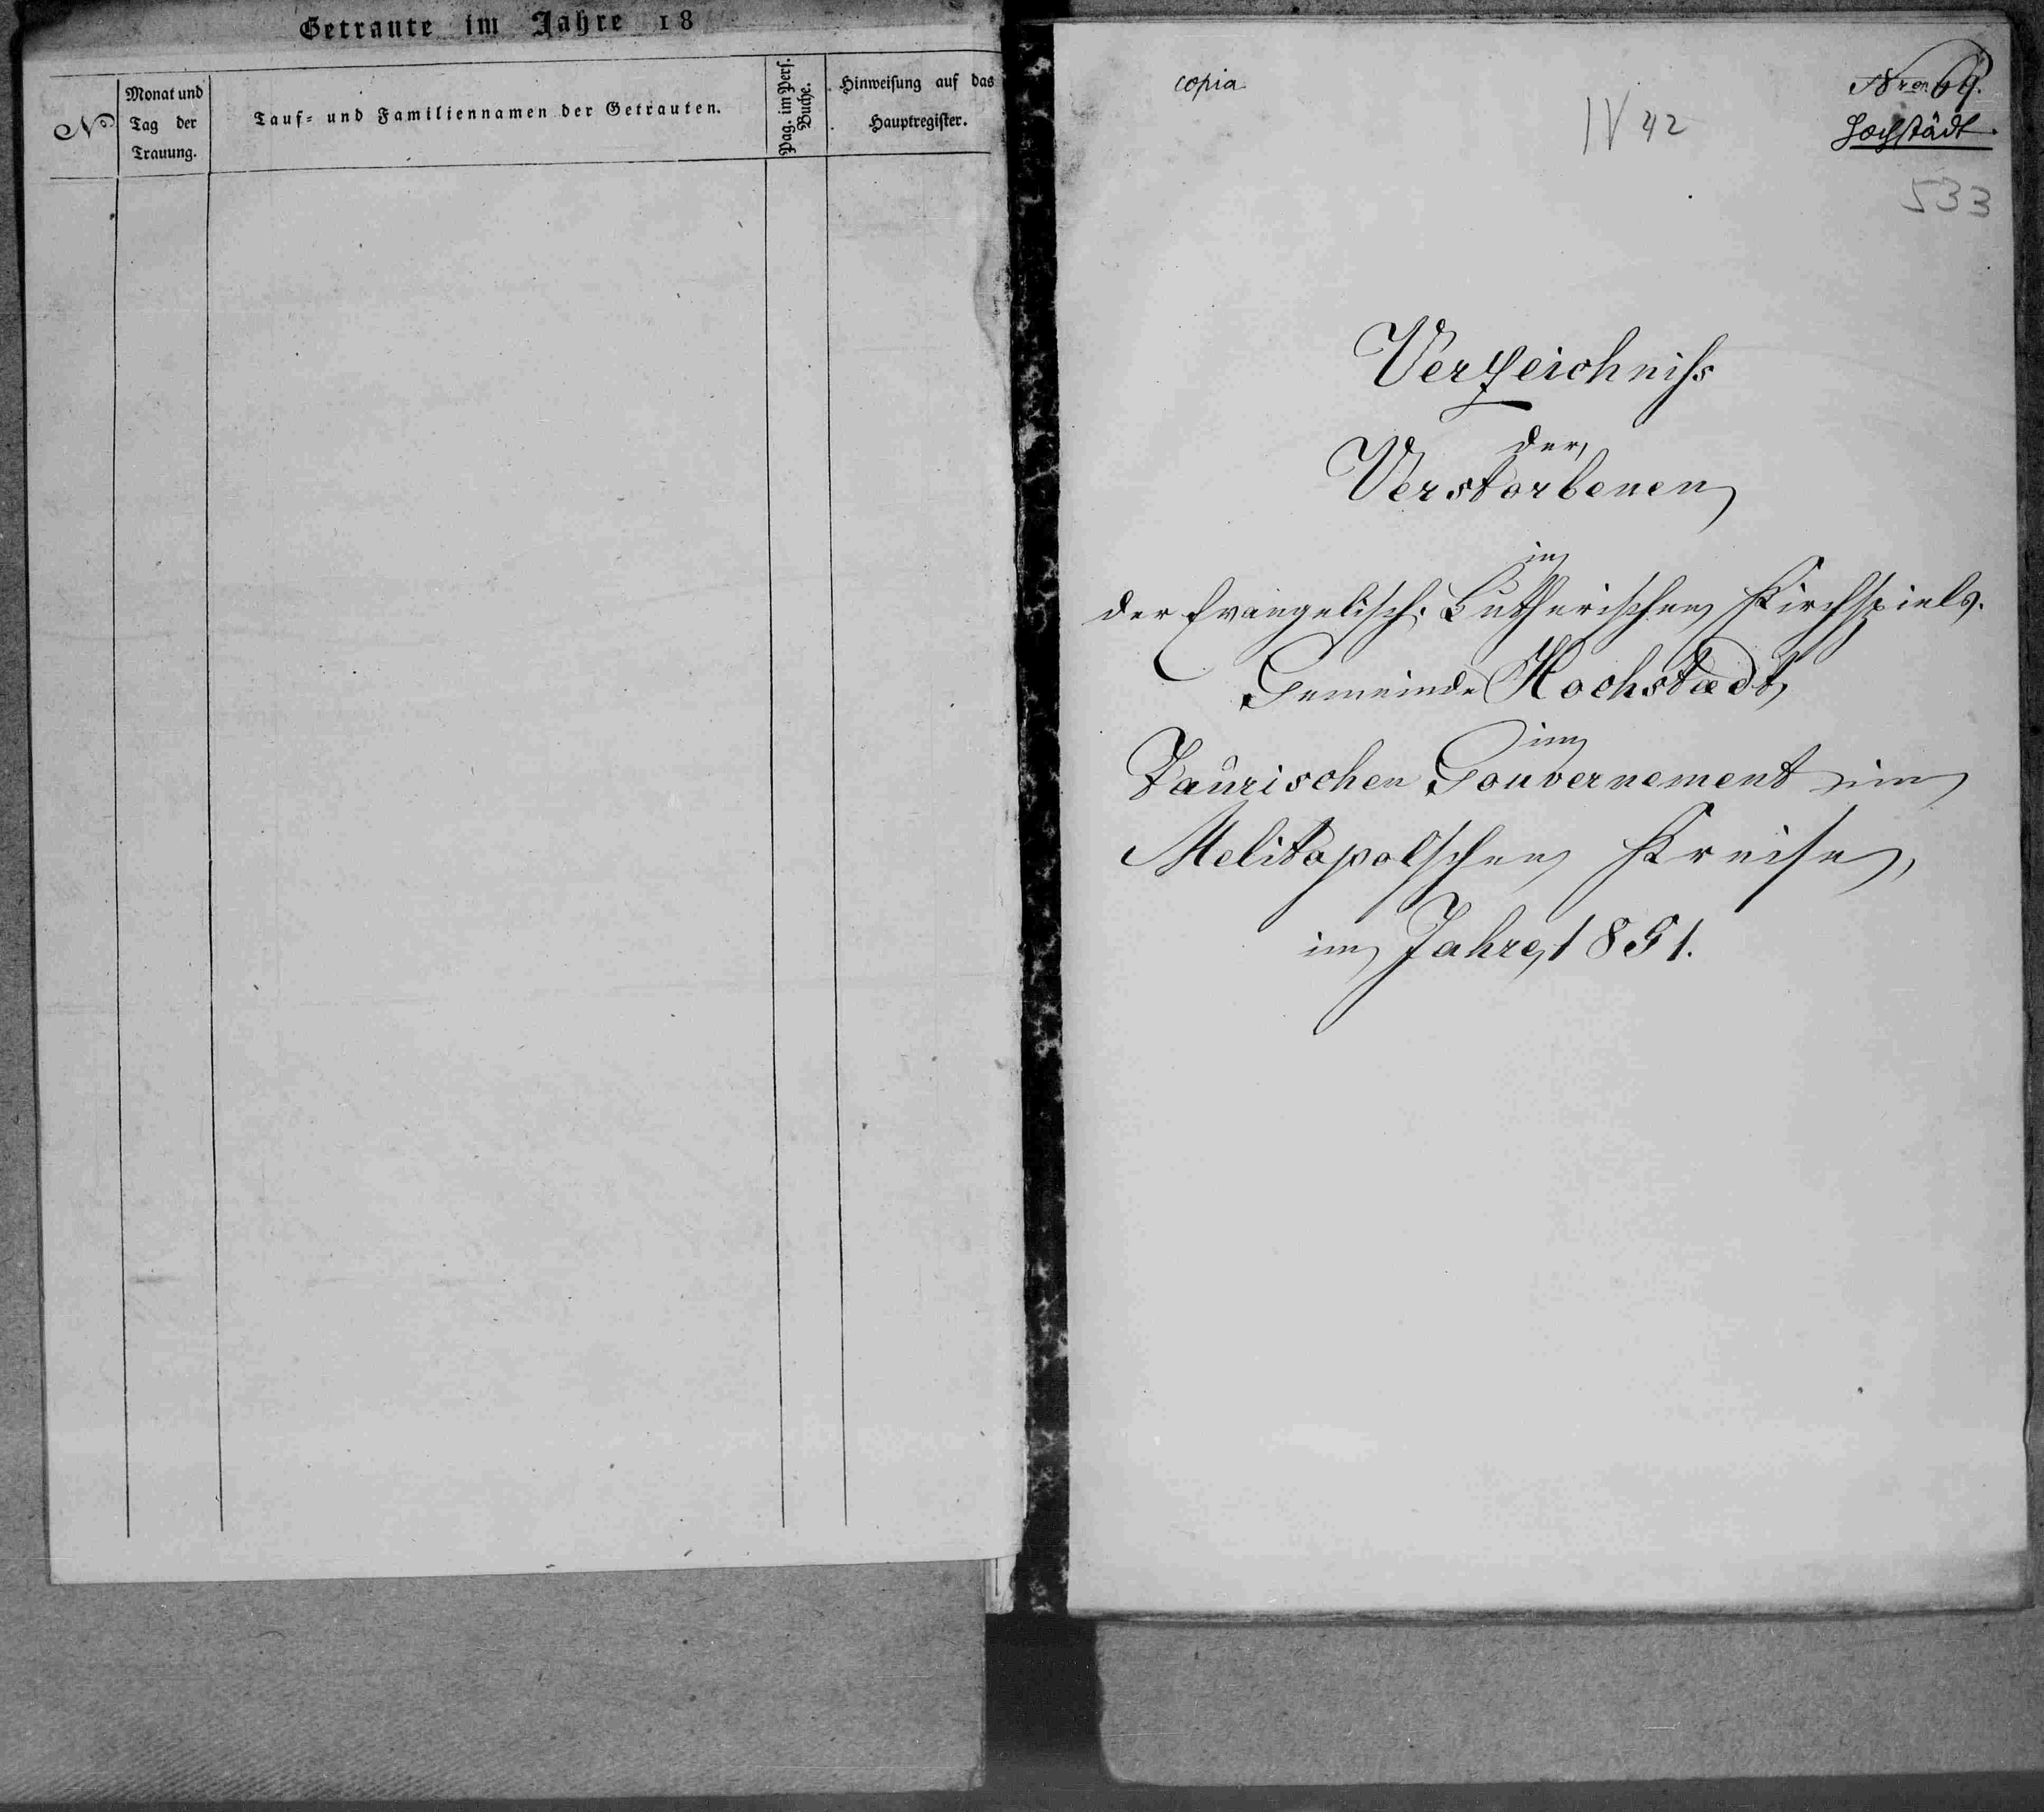 Getraute im Jahre 18
No
Monat und
Tag der
Trauung.
Tauf- und Familiennamen der Getrauten.
Pag. im Pers.
Buche.
Hinweisung auf das
Hauptregister.
copia
IV 42
69.
Hochstädt.
533
Verzeichniss
der
Verstorbenen
in
der Evangelisch-Lutherischen Kirchspiels-
Gemeinde Hochstädt,
im
Taurischen Gouvernement im
Melitopolschen Kreise,
im Jahre 1851.